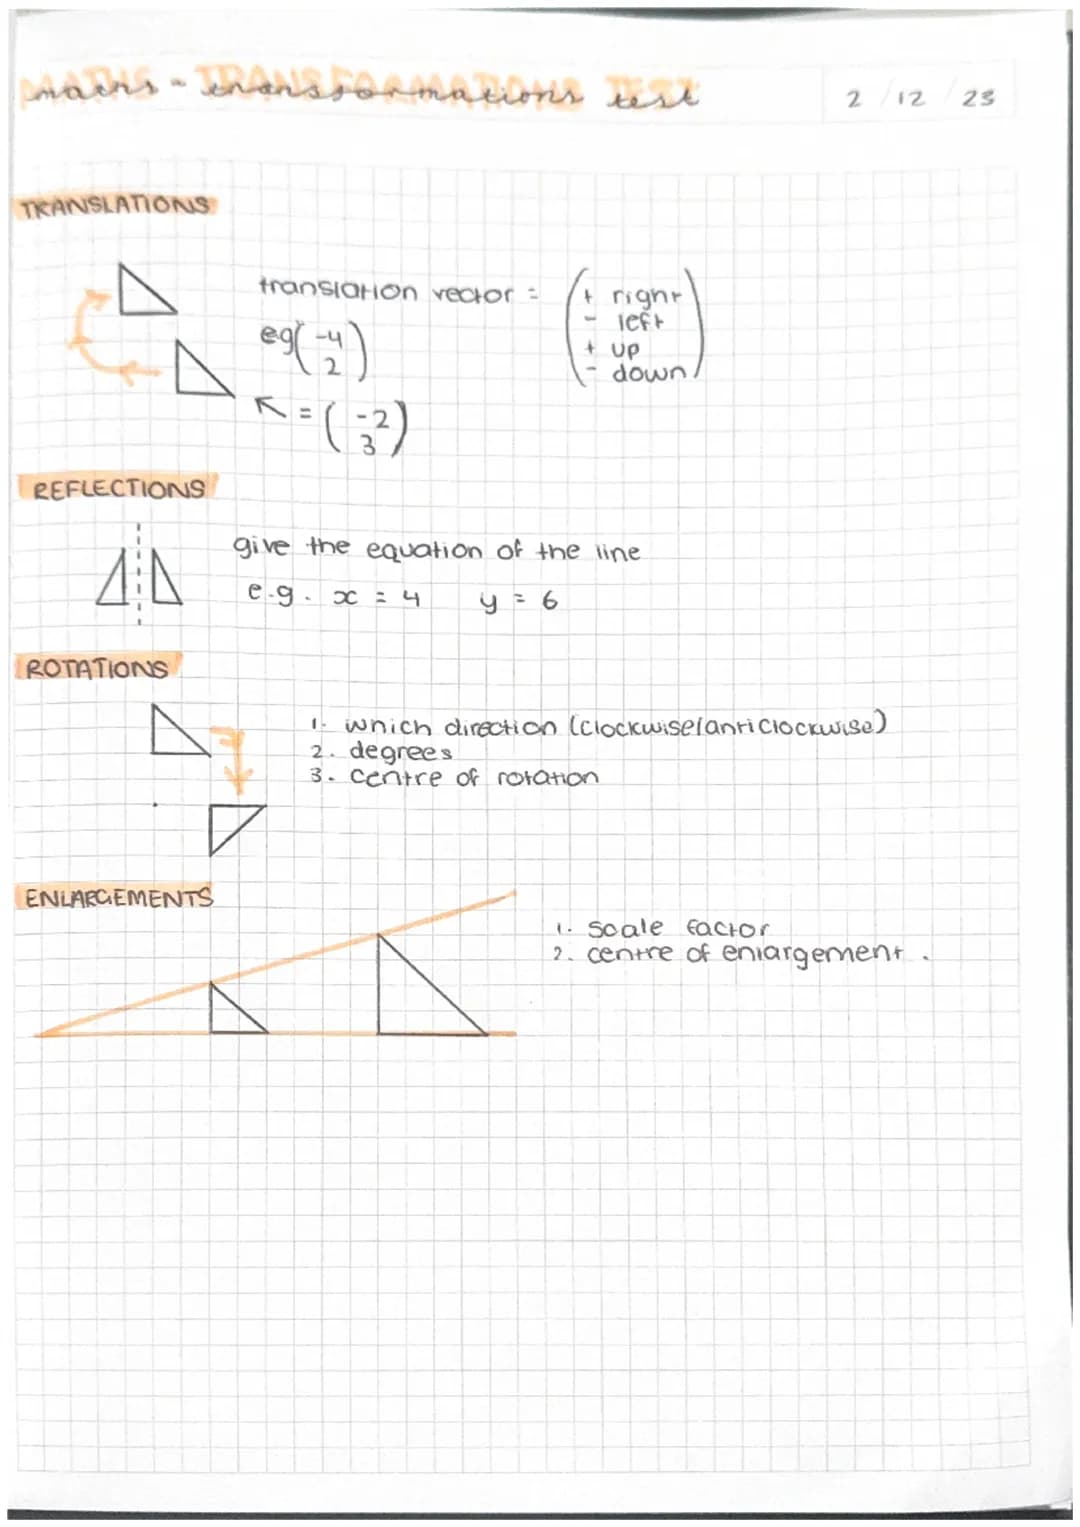 MATHS - TRANSFORMATIONS TEST
maths - transformations test
2 / 12 / 23
TRANSLATIONS
translation vector = ( + right
- left
+ up
- down )
eg ( -4
2 )
↖ = ( -2
3 )
REFLECTIONS
give the equation of the line
e.g. x = 4 y = 6
ROTATIONS
1. which direction (clockwise/anticlockwise)
2. degrees
3. centre of rotation
ENLARGEMENTS
1. scale factor
2. centre of enlargement.